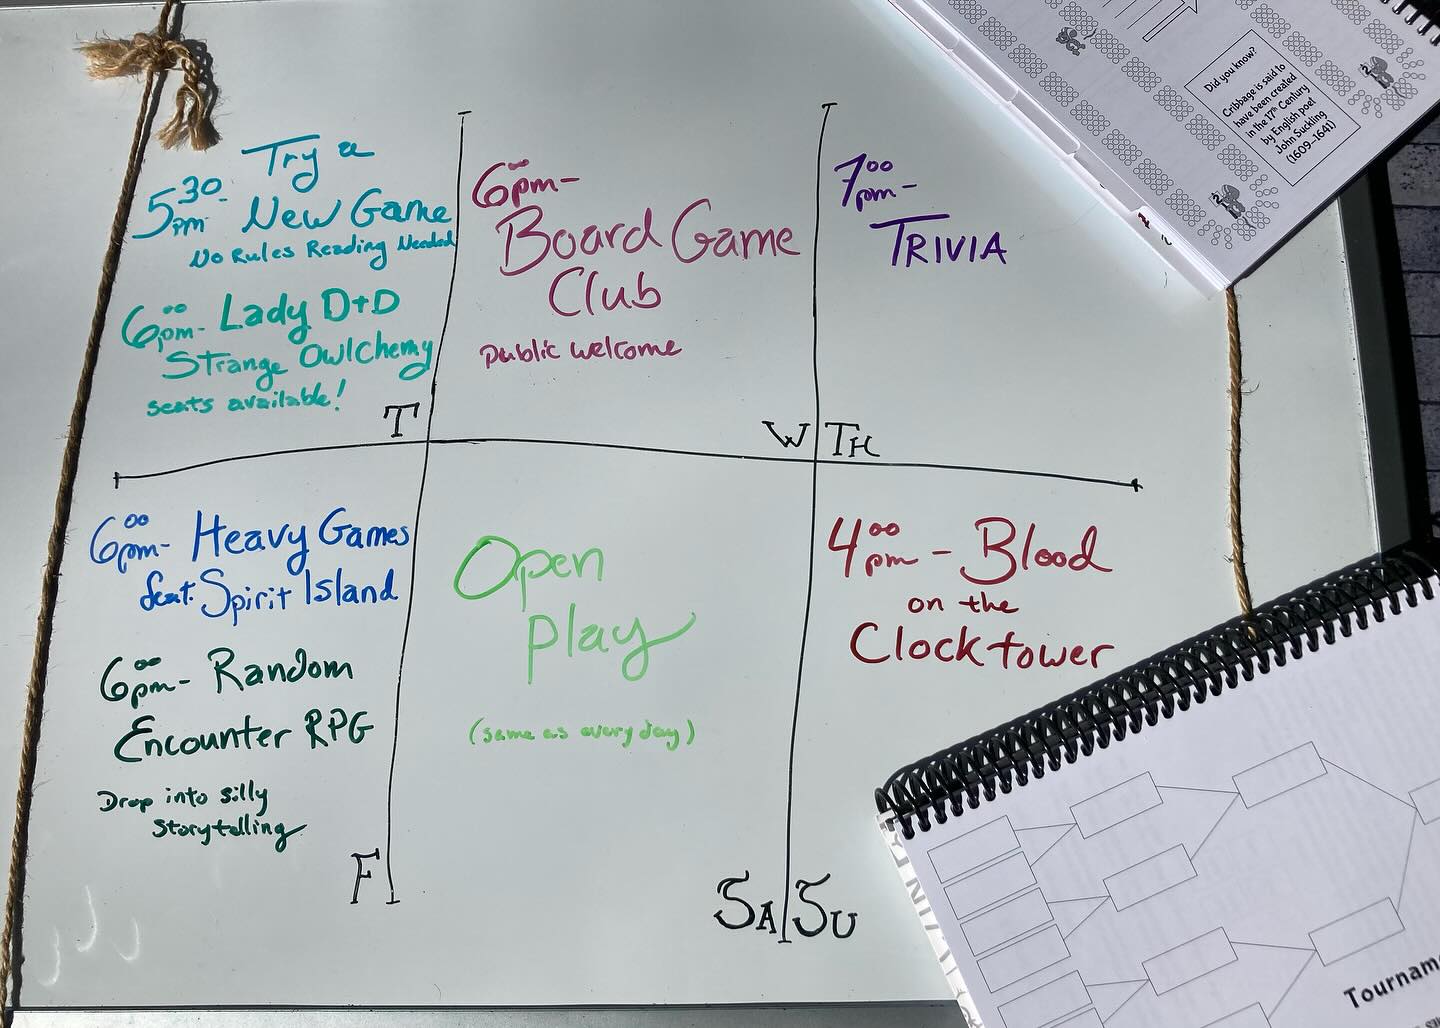 Try a
5 30 pm - New Game
No Rules Reading Needed
6 00 pm - Lady D+D
Strange Owlchemy
seats available!
T
6 00 pm -
Board Game
Club
public welcome
W
7 00 pm -
TRIVIA
TH
6 00 pm - Heavy Games
feat. Spirit Island
6 00 pm - Random
Encounter RPG
Drop into silly
storytelling
F
Open
play
(same as every day)
SA
4 00 pm - Blood
on the
Clocktower
SU
Did you know?
Cribbage is said to
have been created
in the 17th Century
by English poet
John Suckling
(1609-1641)
2
2
Tournam